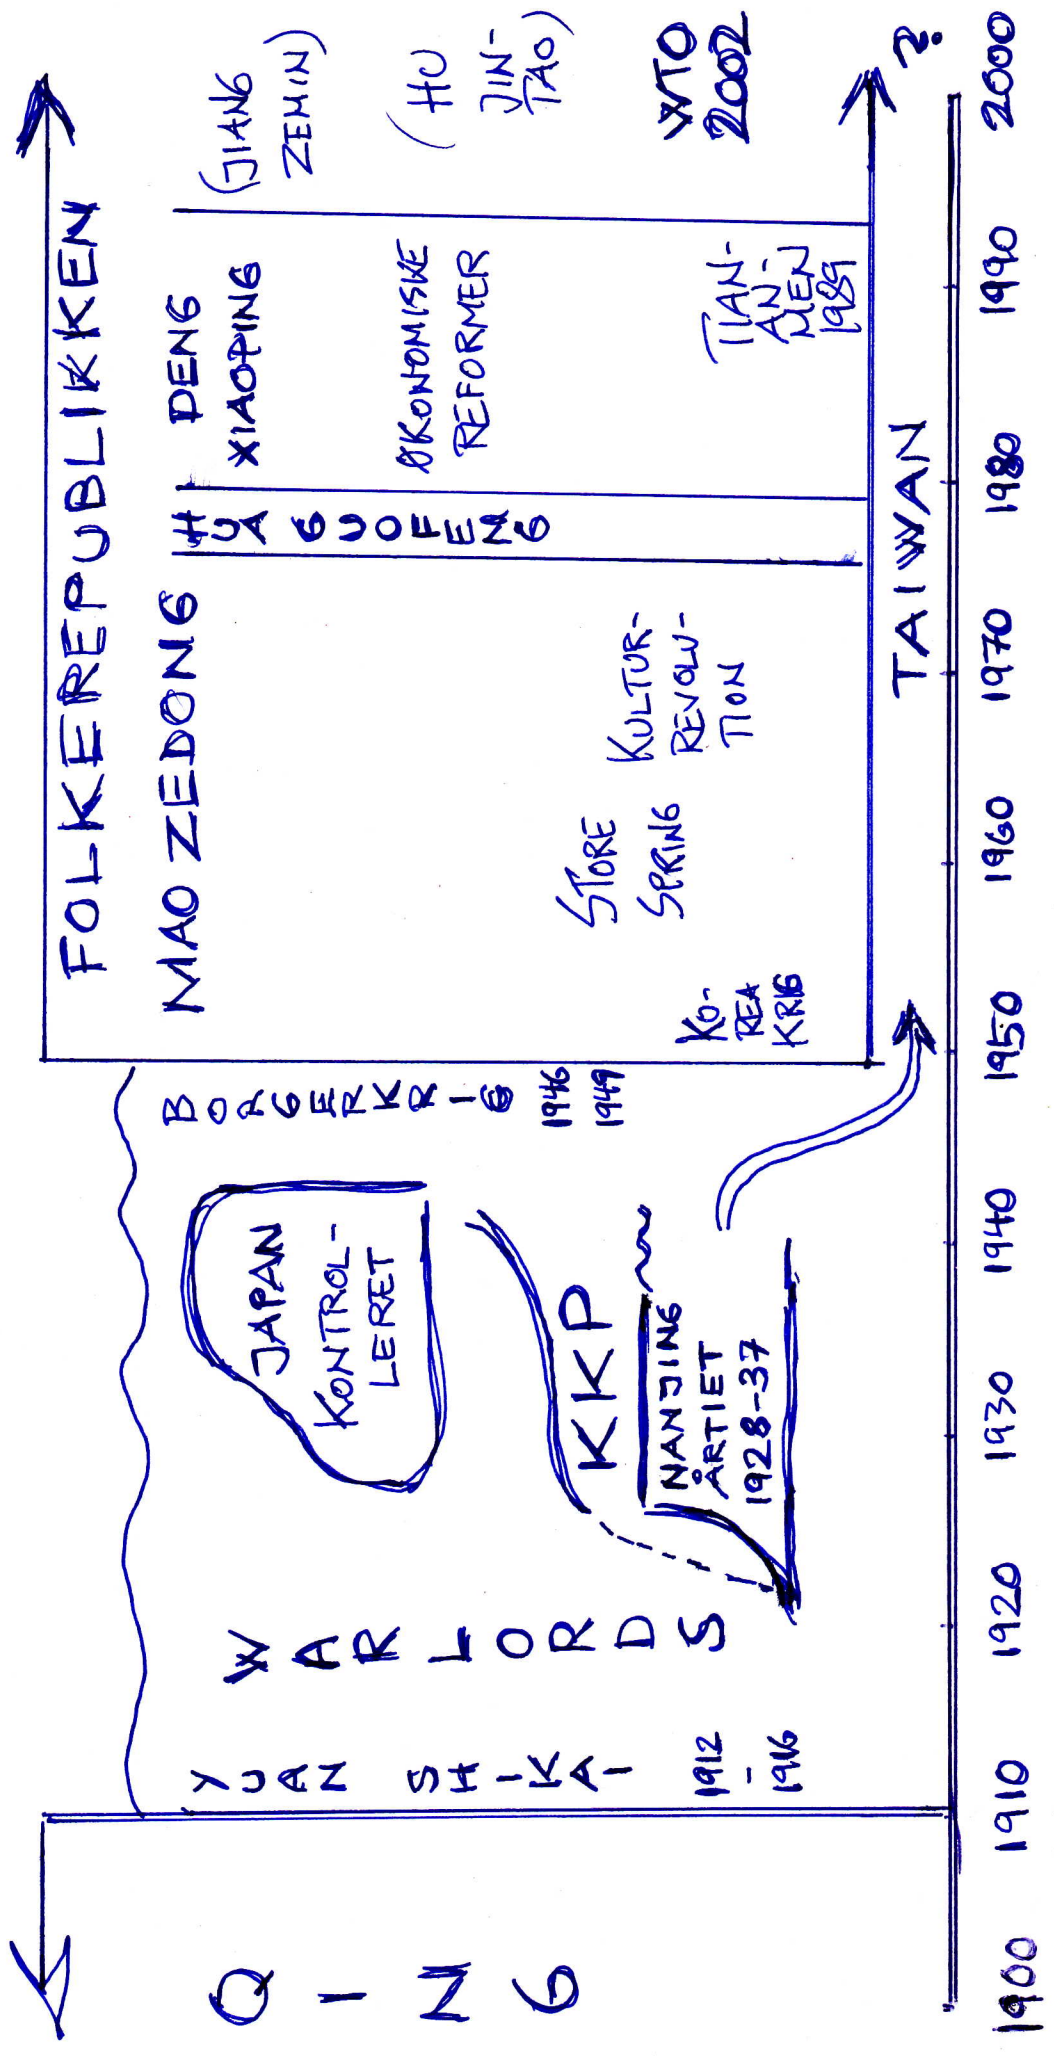 QING
YUAN SHIKAI
1912
-
1916
WARLORDS
JAPAN
KONTROL-
LERET
KKP
NANJING
ÅRTIET
1928-37
BORGERKRIG
1946
1949
FOLKEREPUBLIKKEN
MAO ZEDONG
KO-
REA
KRIG
STORE
SPRING
KULTUR-
REVOLU-
TION
HUA GUOFENG
DENG
XIAOPING
ØKONOMISKE
REFORMER
TIAN-
AN-
MEN
1989
(JIANG
ZEMIN)
(HU
JIN-
TAO)
WTO
2002
TAIWAN ?
1900 1910 1920 1930 1940 1950 1960 1970 1980 1990 2000